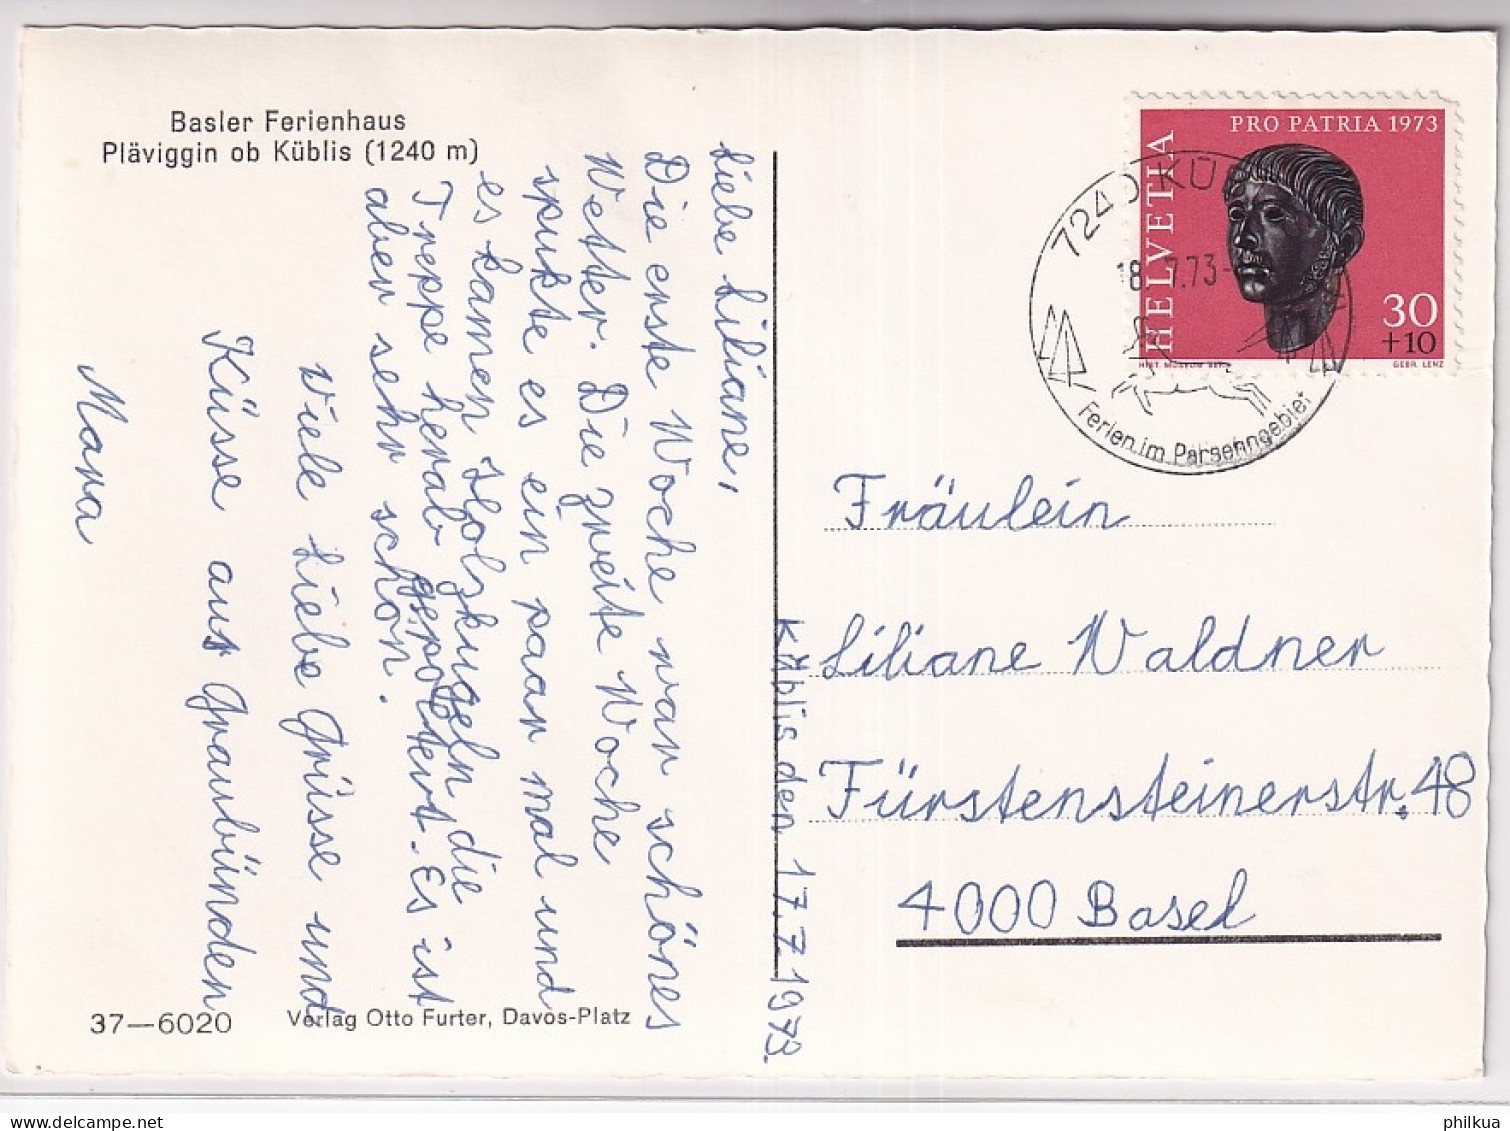 Basler Ferienhaus
Pläviggin ob Küblis (1240 m)
Küblis den 17.7.1973.
Liebe Liliane,
Die erste Woche war schönes
Wetter. Die zweite Woche
spukte es ein paar mal und
es kamen Holzkugeln die
Treppe herab gepoltert. Es ist
aber sehr schön.
Viele Liebe Grüsse und
Küsse aus Graubünden
Mara
37—6020
Verlag Otto Furter, Davos-Platz
PRO PATRIA 1973
HELVETIA
30
+10
HIST. MUSEUM BERN
GEBR. LENZ
7240 KÜ
18.7.73-
Ferien im Parsenngebiet
Fräulein
Liliane Waldner
Fürstensteinerstr. 48
4000 Basel
philkua